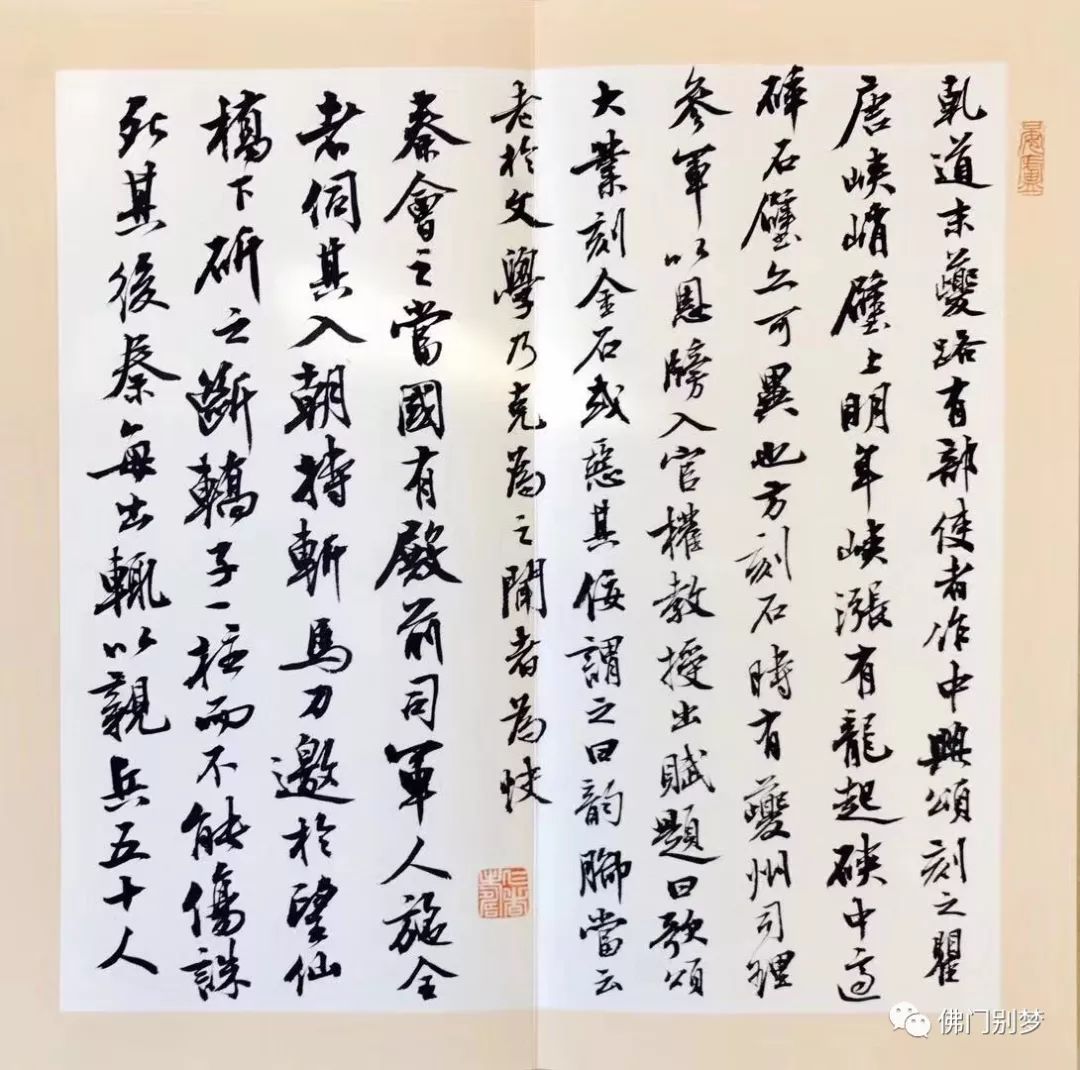 乹道末夔路有部使者作中興頌刻之瞿
唐峽峭壁上明年峽漲有龍起硤中適
碎石壁亦可異也方刻石時有夔州司理
參軍以恩牓入官權教授出賦題曰歌頌
大業刻金石或惡其佞謂之曰韵腳當云
老於文學乃克為之聞者為快
秦會之當國有殿前司軍人施全
者伺其入朝持斬馬刀邀於望仙
橋下斫之斷轎子一柱而不能傷誅
死其後秦每出輒以親兵五十人
佛门别梦